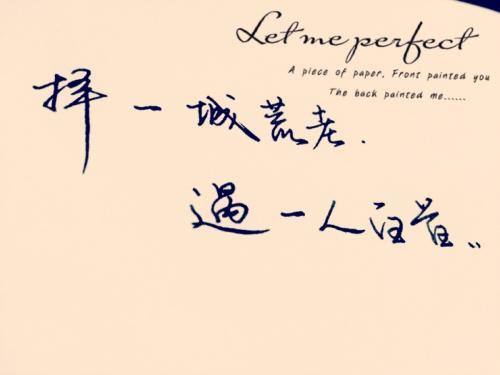 Let me perfect
A piece of paper, Front painted you
The back painted me......
择一城荒老.
遇一人